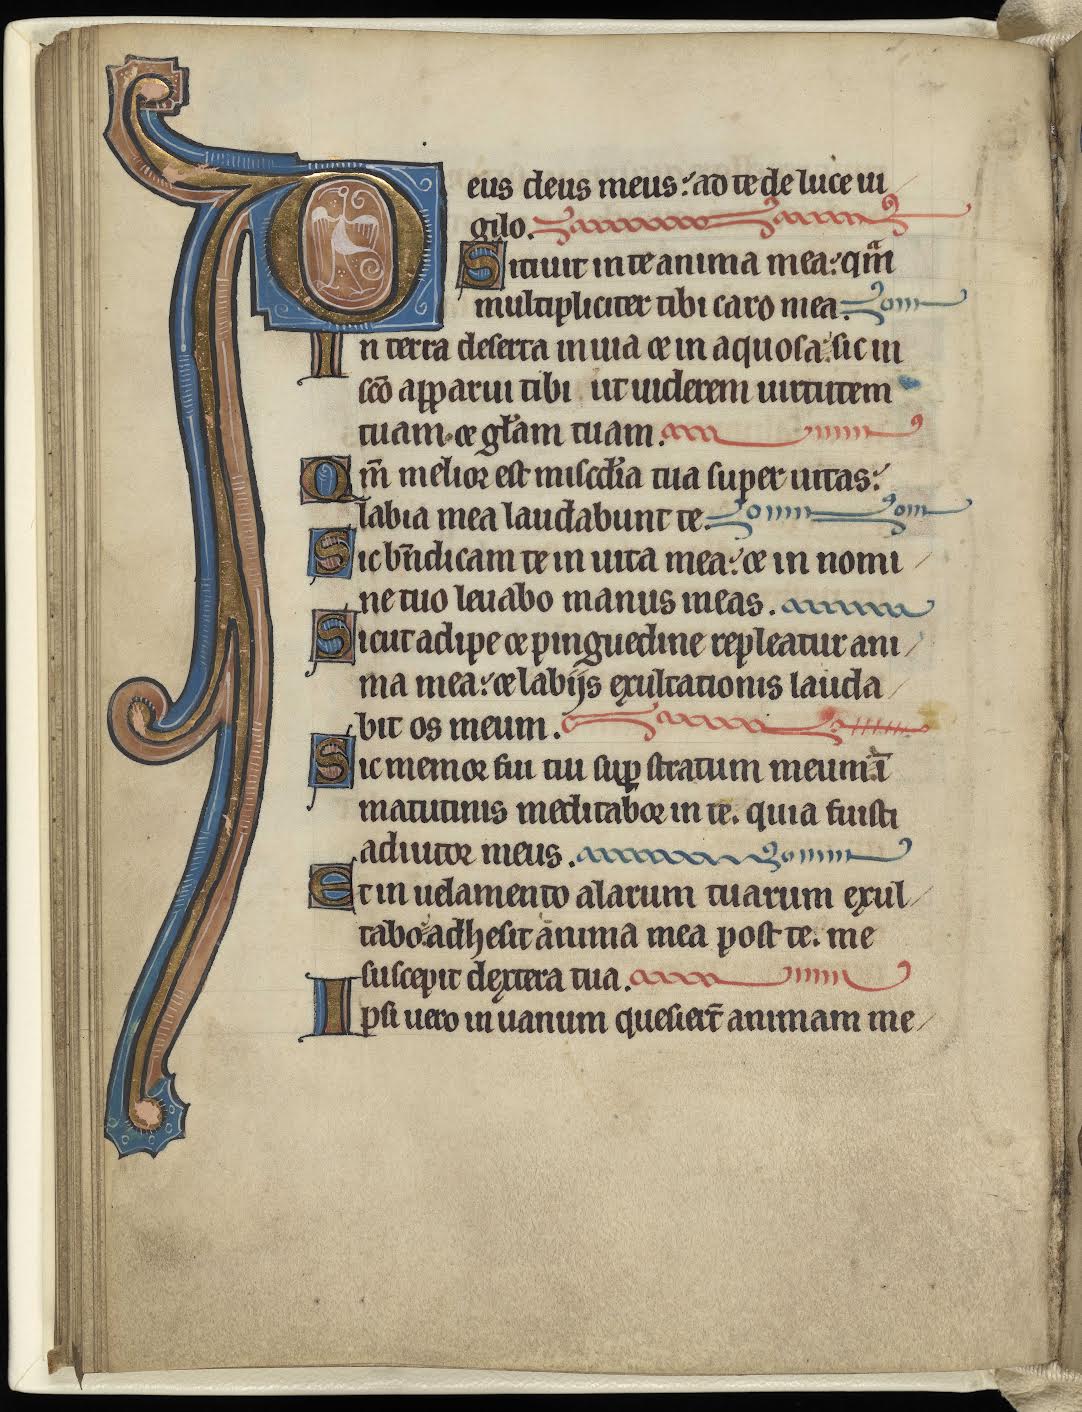 Deus deus meus: ad te de luce ui
gilo.
Sitiuit in te anima mea: qm̄
multipliciter tibi caro mea.
In terra deserta inuia et in aquosa: sic in
sc̄o apparui tibi ut uiderem uirtutem
tuam. et gl̄am tuam.
Qm̄ melior est misc̄dia tua super uitas:
labia mea laudabunt te.
Sic bn̄dicam te in uita mea: et in nomi
ne tuo leuabo manus meas.
Sicut adipe et pinguedine repleatur ani
ma mea: et labijs exultationis lauda
bit os meum.
Sic memor fui tui sup stratum meum: ī
matutinis meditabor in te. quia fuisti
adiutor meus.
Et in uelamento alarum tuarum exul
tabo: adhesit anima mea post te. me
suscepit dextera tua.
Ipsi uero in uanum quesiert̄ animam me